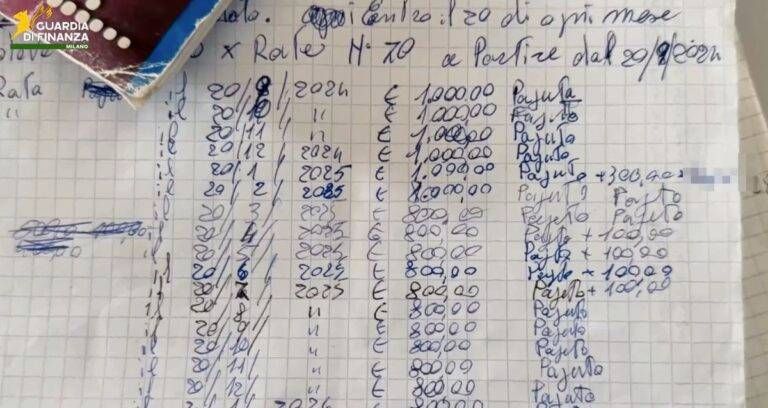 GUARDIA
DI FINANZA
MILANO
Entro il 20 di ogni mese
x Rate N. 20 a Partire dal 20/9/2024
Rata 20/9/2024 € 1.000,00 Pagata
" 20/10/ " € 1.000,00 Pagato
20/11/ " € 1.000,00 Pagato
20/12/ 2024 € 1.000,00 Pagato
20/1/ 2025 € 1.000,00 Pagato +300,00
20/2/ 2025 € 1.000,00 Pagato Pagato
20/3/ 2025 € 800,00 Pagato Pagato
20/4/ 2025 € 800,00 Pagato + 100,00
20/5/ 2025 € 800,00 Pagato + 100,00
20/6/ 2025 € 800,00 Pagato + 100,00
20/7/ 2025 € 800,00 Pagato + 100,00
20/8/ " € 800,00 Pagato
20/9/ " € 800,00 Pagato
20/10/ " € 800,00 Pagato
20/11/ " € 800,00 Pagato
20/12/ " € 800,00 Pagato